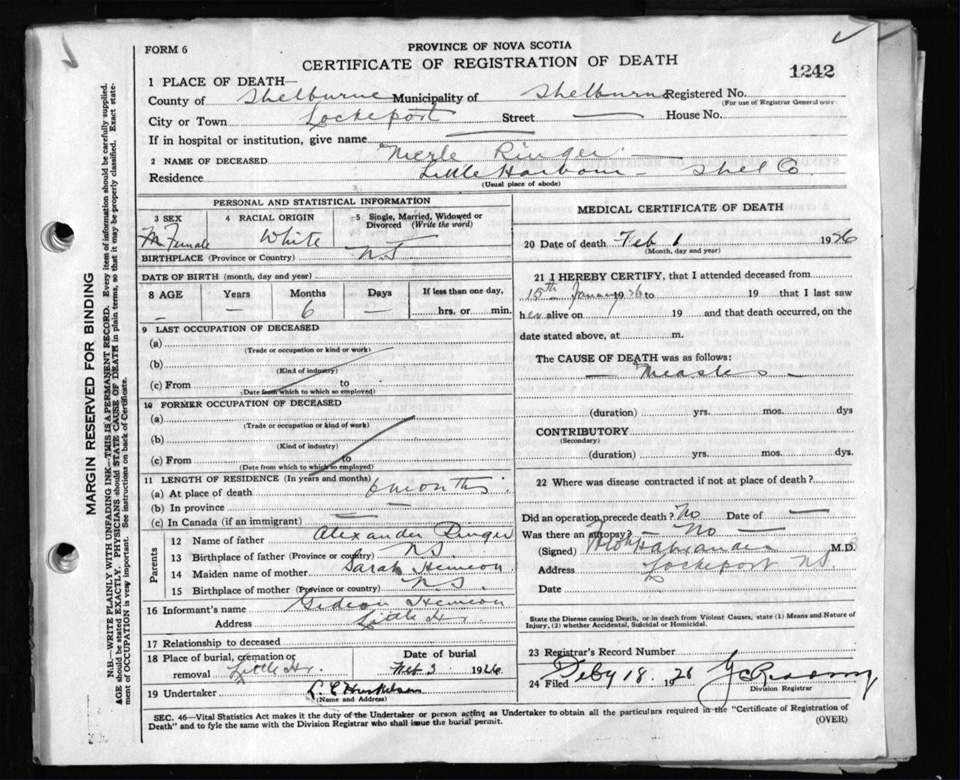 FORM 6
PROVINCE OF NOVA SCOTIA
CERTIFICATE OF REGISTRATION OF DEATH
1242
1 PLACE OF DEATH—
County of Shelburne Municipality of Shelburne Registered No.
(For use of Registrar General only)
City or Town Lockeport Street — House No.
If in hospital or institution, give name
2 NAME OF DECEASED Merle Ringer
Residence Little Harbour - Shel Co
(Usual place of abode)
PERSONAL AND STATISTICAL INFORMATION
3 SEX 4 RACIAL ORIGIN 5 Single, Married, Widowed or Divorced (Write the word)
Female White
BIRTHPLACE (Province or Country) N.S
DATE OF BIRTH (month, day and year)
8 AGE Years Months Days If less than one day,
— — 6 — hrs. or min.
9 LAST OCCUPATION OF DECEASED
(a)
(Trade or occupation or kind or work)
(b)
(Kind of industry)
(c) From to
(Date from which to which so employed)
10 FORMER OCCUPATION OF DECEASED
(a)
(Trade or occupation or kind of work)
(b)
(Kind of industry)
(c) From to
(Date from which to which so employed)
11 LENGTH OF RESIDENCE (In years and months)
(a) At place of death 6 months
(b) In province —
(c) In Canada (if an immigrant)
Parents
12 Name of father Alexander Ringer
13 Birthplace of father (Province or country) N.S.
14 Maiden name of mother Sarah Hemeon
15 Birthplace of mother (Province or country) N.S.
16 Informant's name Gideon Hemeon
Address Little Hr.
17 Relationship to deceased
18 Place of burial, cremation or removal Little Hr. Date of burial Feb 3 1926
19 Undertaker L. E.
(Name and Address)
MEDICAL CERTIFICATE OF DEATH
20 Date of death Feb 1 1926
(Month, day and year)
21 I HEREBY CERTIFY, that I attended deceased from
15th January 1926 to 19 that I last saw
her alive on 19 and that death occurred, on the
date stated above, at m.
The CAUSE OF DEATH was as follows:
— Measles —
(duration) yrs. mos. dys
CONTRIBUTORY
(Secondary)
(duration) yrs. mos. dys.
22 Where was disease contracted if not at place of death?
Did an operation precede death? No Date of —
Was there an autopsy? — No —
(Signed) M.D.
Address Lockeport N.S.
Date
State the Disease causing Death, or in death from Violent Causes, state (1) Means and Nature of
Injury, (2) whether Accidental, Suicidal or Homicidal.
23 Registrar's Record Number
24 Filed Feby 18 1926
Division Registrar
SEC. 46—Vital Statistics Act makes it the duty of the Undertaker or person acting as Undertaker to obtain all the particulars required in the "Certificate of Registration of
Death" and to fyle the same with the Division Registrar who shall issue the burial permit.
(OVER)
MARGIN RESERVED FOR BINDING
N.B.—WRITE PLAINLY WITH UNFADING INK—THIS IS A PERMANENT RECORD. Every item of information should be carefully supplied.
AGE should be stated EXACTLY. PHYSICIANS should STATE CAUSE OF DEATH in plain terms, so that it may be properly classified. Exact statement of OCCUPATION is very important. See instructions on back of Certificate.